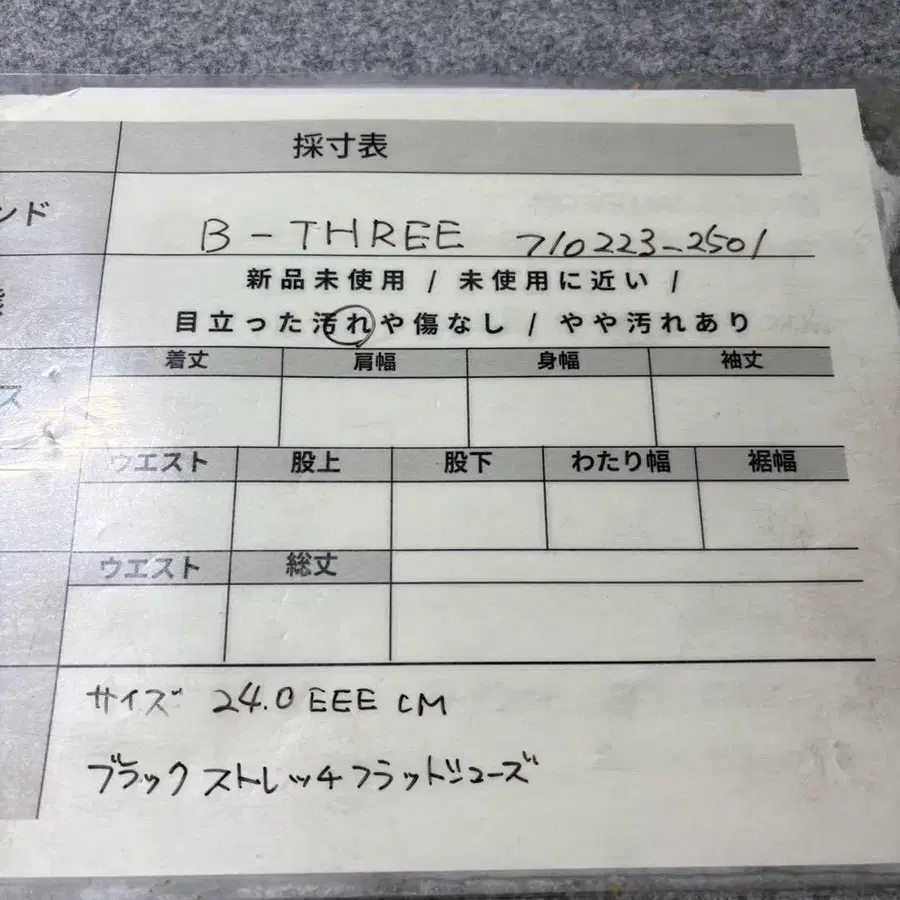 採寸表
ンド
B-THREE 710223-2501
新品未使用 / 未使用に近い /
目立った汚れや傷なし / やや汚れあり
着丈 肩幅 身幅 袖丈
ス
ウエスト 股上 股下 わたり幅 裾幅
ウエスト 総丈
サイズ 24.0 EEE CM
ブラック ストレッチ フラットシューズ